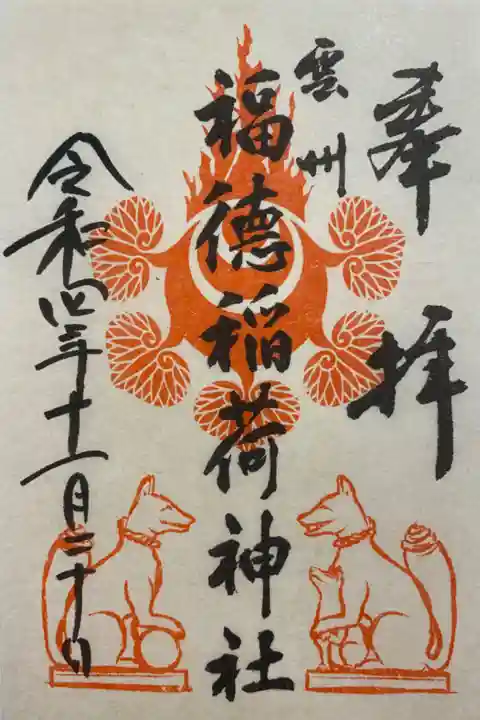 奉拝
雲州
福徳稲荷神社
令和四年十一月二十日